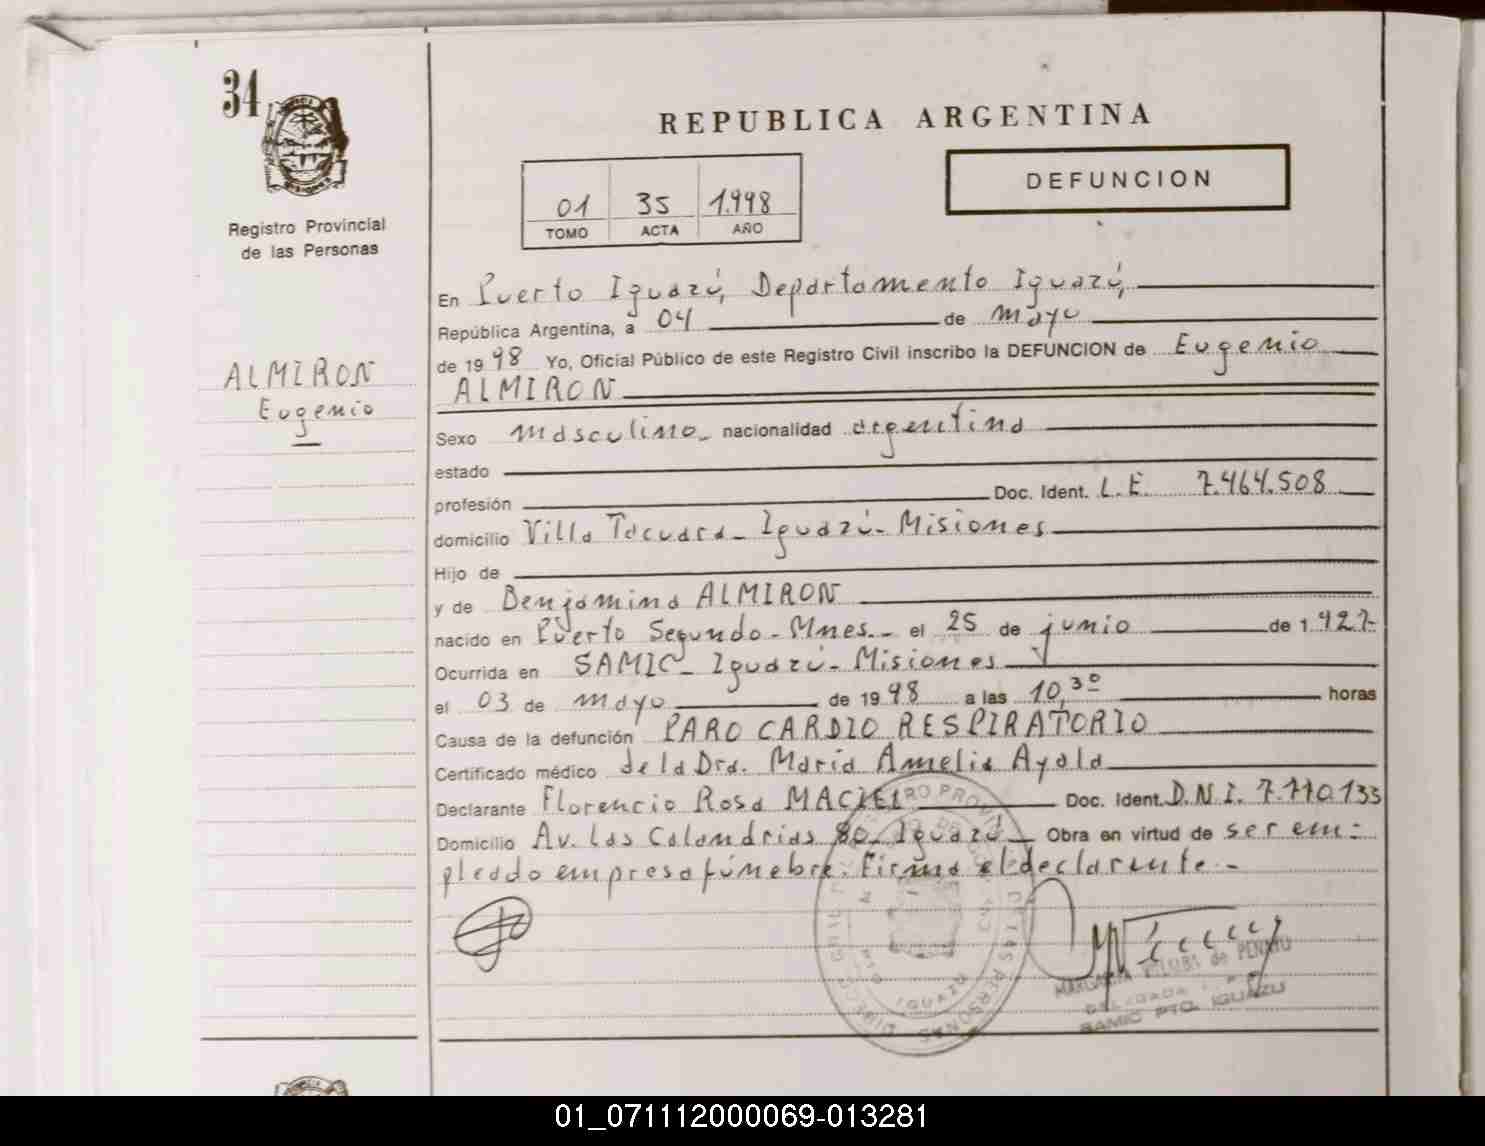 34
Registro Provincial
de las Personas
ALMIRON
Eugenio
REPUBLICA ARGENTINA
DEFUNCION
01 35 1.998
TOMO ACTA AÑO
En Puerto Iguazú, Departamento Iguazú,
República Argentina, a 04 de mayo
de 1998 Yo, Oficial Público de este Registro Civil inscribo la DEFUNCION de Eugenio
ALMIRON
Sexo masculino nacionalidad argentina
estado
profesión Doc. Ident. L.E. 7.464.508
domicilio Villa Tacuara - Iguazú - Misiones
Hijo de
y de Benjamina ALMIRON
nacido en Puerto Segundo - Mnes. - el 25 de junio de 1.927-
Ocurrida en SAMIC - Iguazú - Misiones
el 03 de mayo de 1998 a las 10,30 horas
Causa de la defunción PARO CARDIO RESPIRATORIO
Certificado médico de la Dra. Maria Amelia Ayala
Declarante Florencio Rosa MACIEL Doc. Ident. D.N.I. 7.710.133
Domicilio Av. Las Calandrias 80 - Iguazú - Obra en virtud de ser em-
pleado empresa fúnebre. Firma el declarante. -
IGUAZU
MARGARITA de
DELEGADA
SAMIC PTO. IGUAZU
01_071112000069-013281